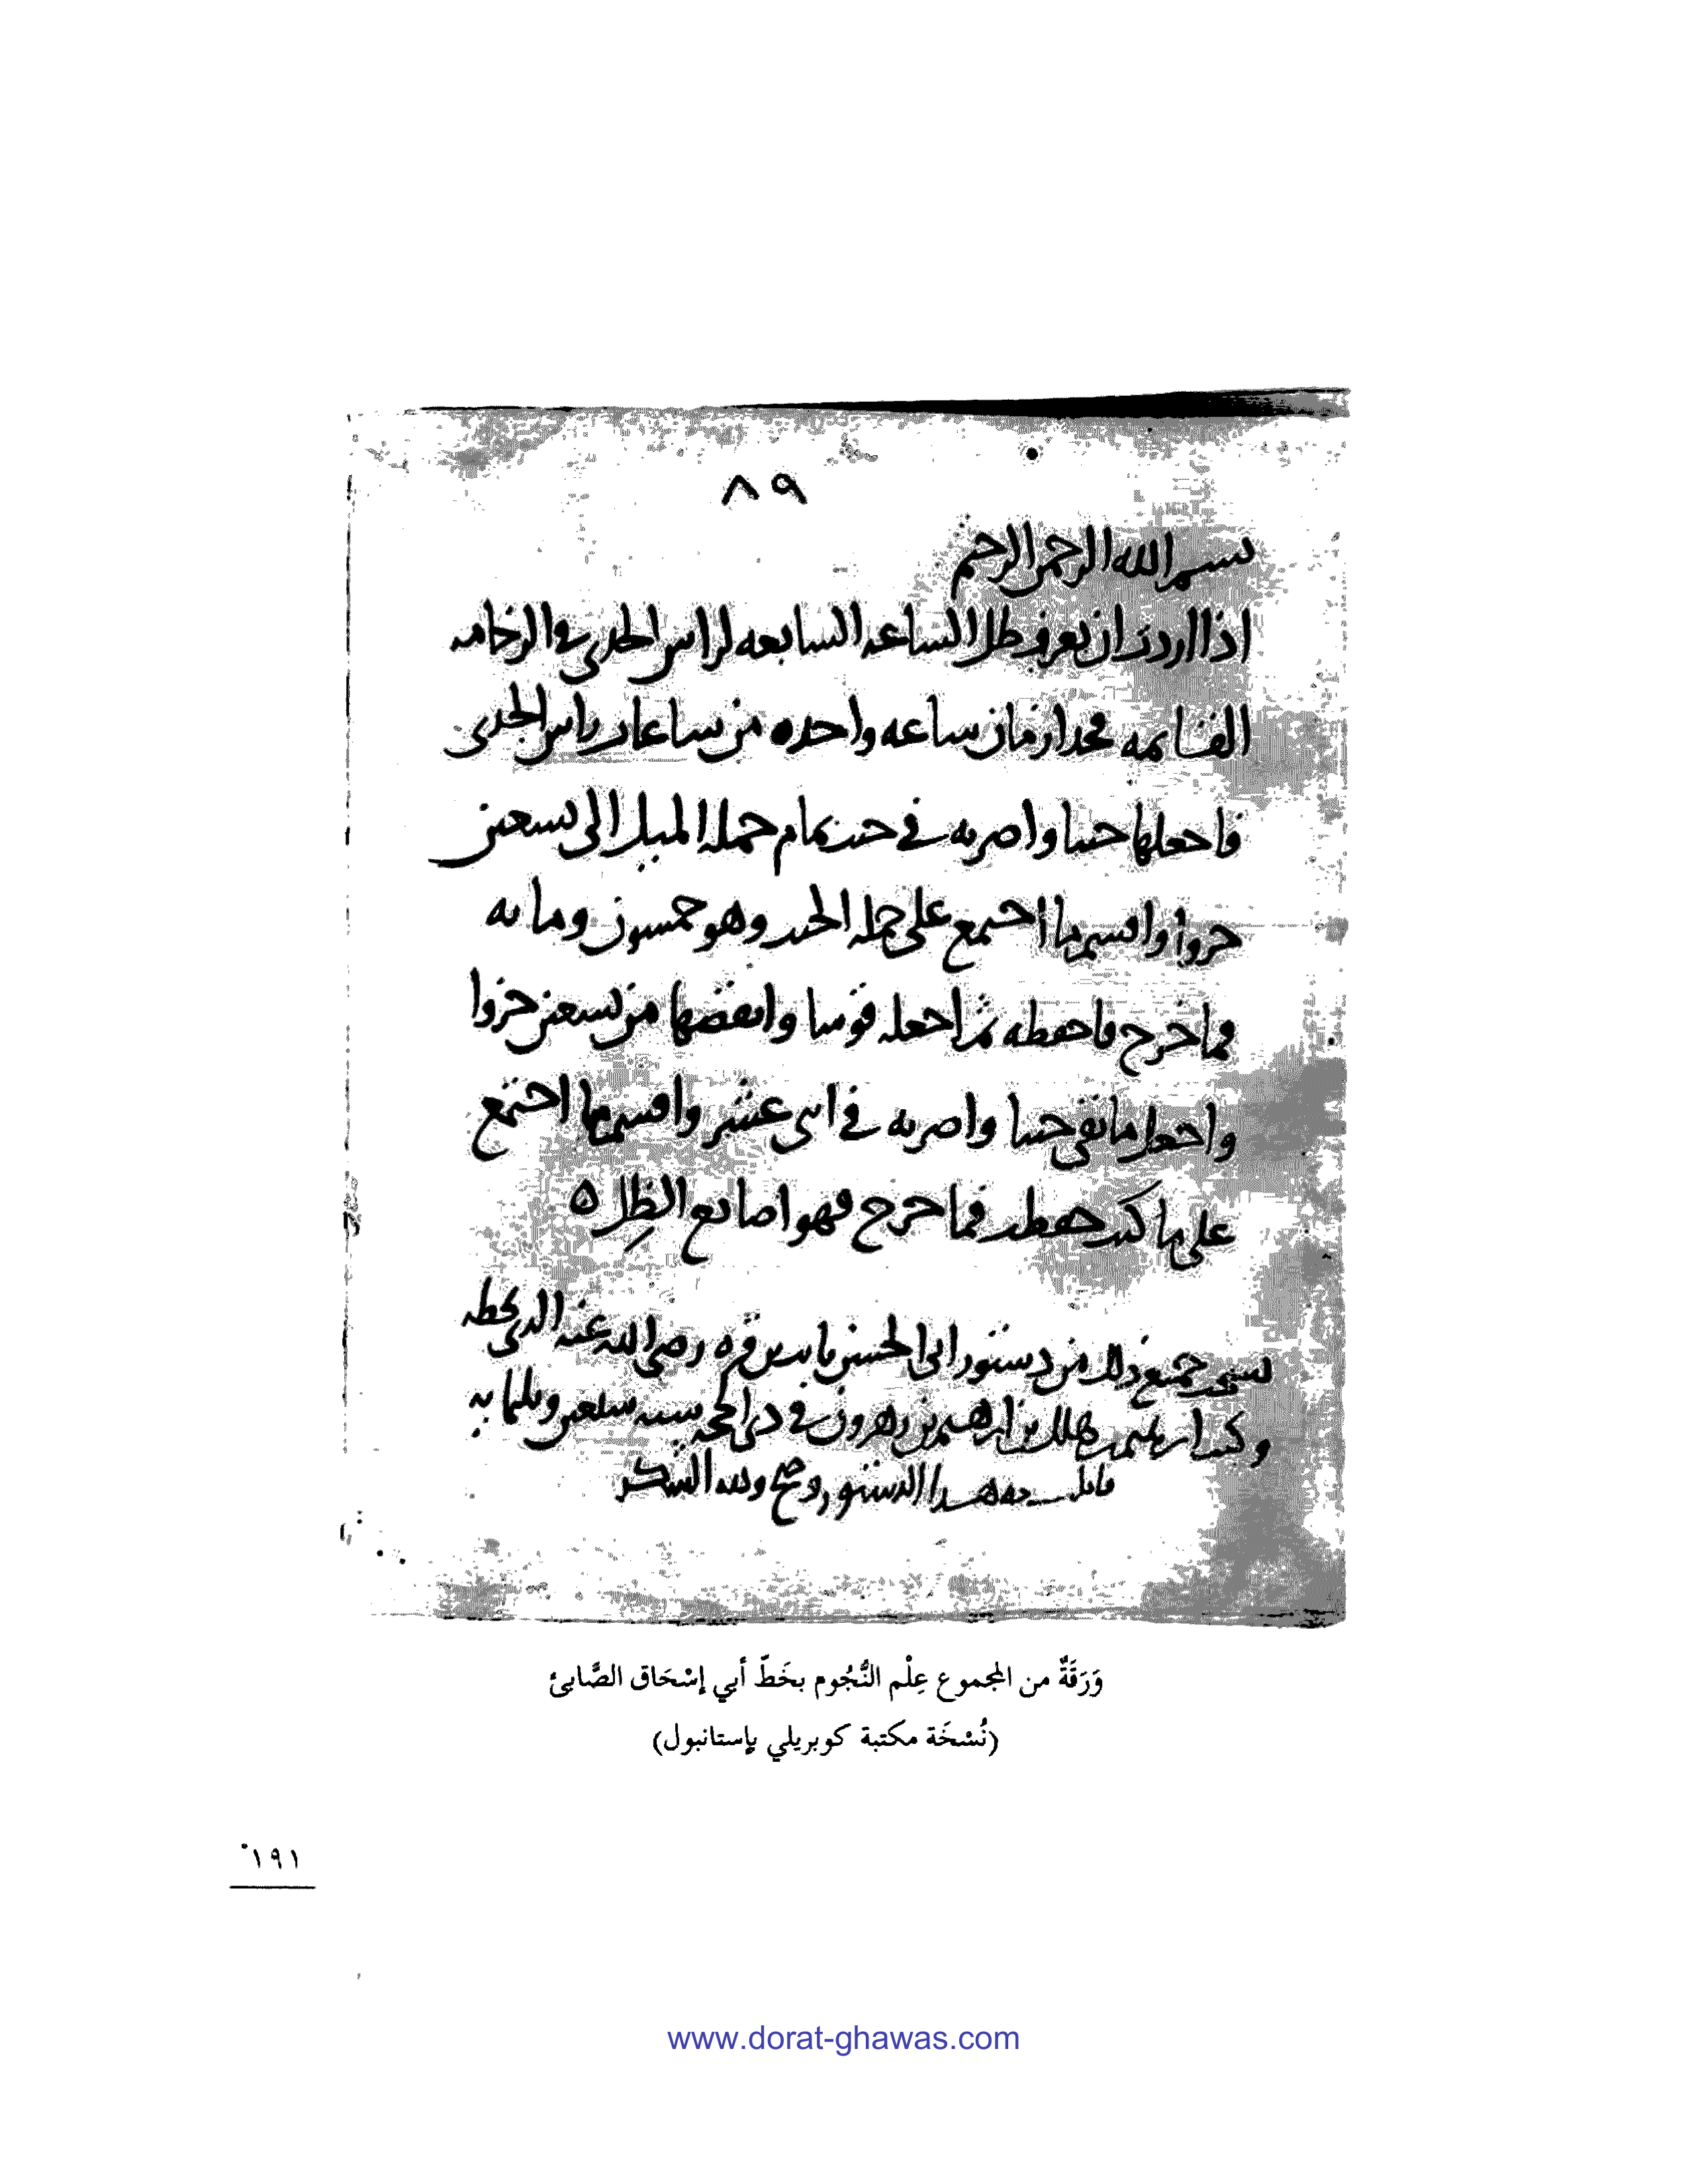 ٨٩
بسم الله الرحمن الرحيم
اذا اردت ان تعرف ظل الساعه السابعه لراس الجدى في الرخامه
القائمه فخذ ازمان ساعه واحده من ساعات راس الجدى
فاجعلها جيبا واضربه في جيب تمام جمله الميل الى تسعين
جزوا واقسم ما اجتمع على جمله الجيب وهو خمسون ومايه
فما خرج فاحفظه ثم اجعله قوسا وانقصها من تسعين جزوا
واجعل ما بقى جيبا واضربه في اثنى عشر واقسم ما اجتمع
على ما كنت حفظت فما خرج فهو اصابع الظل ه
نسخت جميع ذلك من دستور ابى الحسن ثابت بن قره رضى الله عنه الذى بخطه
وكتب ابرهيم بن هلال بن ابرهيم بن زهرون في ذى الحجه سنه سبعين وثلثمايه
قابلت به هذا الدستور وصح ولله الشكر
وَرَقَةٌ من المجموع عِلْم النُّجُوم بخَطّ أبي إسْحَاق الصَّابئ
(نُسْخَة مكتبة كوبريلي بإستانبول)
١٩١
www.dorat-ghawas.com